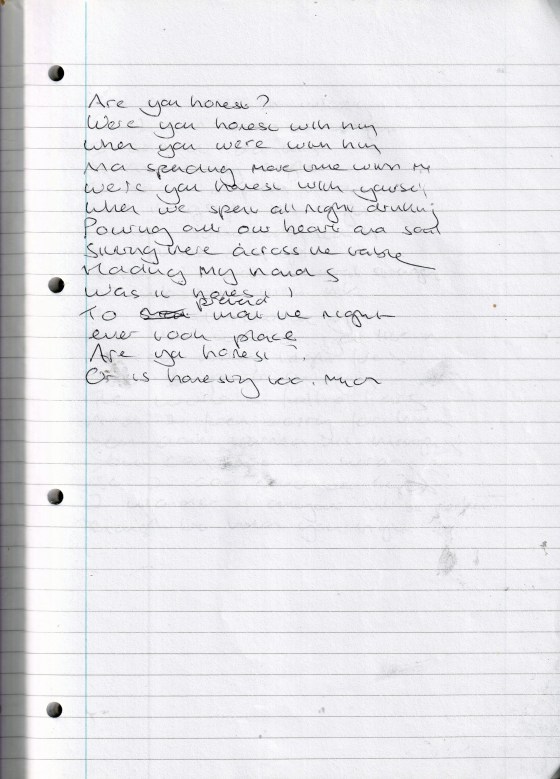 Are you honest?
Were you honest with him
when you were with him
And spending more time with me
Were you honest with yourself
When we spent all night drinking
Pouring out our heart and soul
Sitting here across the table
Holding my hands
Was it honest
To pretend that the night
ever took place
Are you honest?
Or is honesty too much